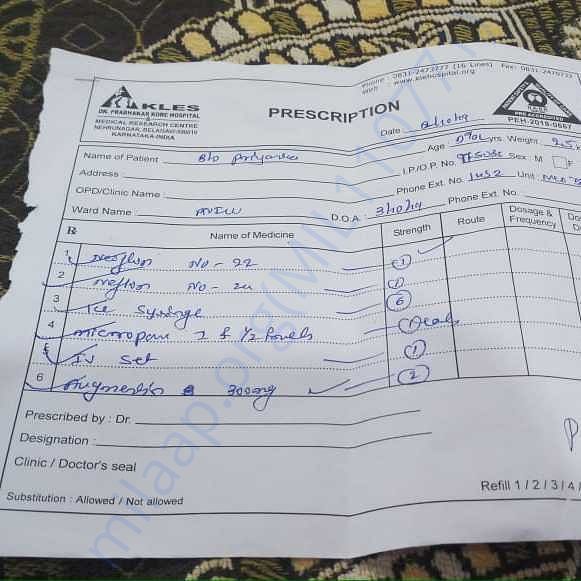 Phone : 0831-2473777 (16 Lines) Fax: 0831-2470732
Web : www.klehospital.org
KLES
DR. PRABHAKAR KORE HOSPITAL
&
MEDICAL RESEARCH CENTRE
NEHRUNAGAR, BELAGAVI-590010
KARNATAKA-INDIA
PRESCRIPTION
PEH-2018-0667
Date
Name of Patient : B/o Priyanka Age : yrs. Weight :
Address : I.P./O.P. No. Sex: M F
OPD/Clinic Name : Phone Ext. No. 1452 Unit :
Ward Name : D.O.A : Phone Ext. No. :
Rx Name of Medicine Strength Route Dosage & Frequency
1 Neoflon No - 22 1
2 Neoflon No - 24 1
3 1cc Syringe 6
4 micropore 1 & 1/2
5 IV Set 1
6 Augmentin 300mg 2
Prescribed by : Dr.
Designation :
Clinic / Doctor's seal
Substitution : Allowed / Not allowed
Refill 1 / 2 / 3 / 4 /
milaap.org(MIL11077